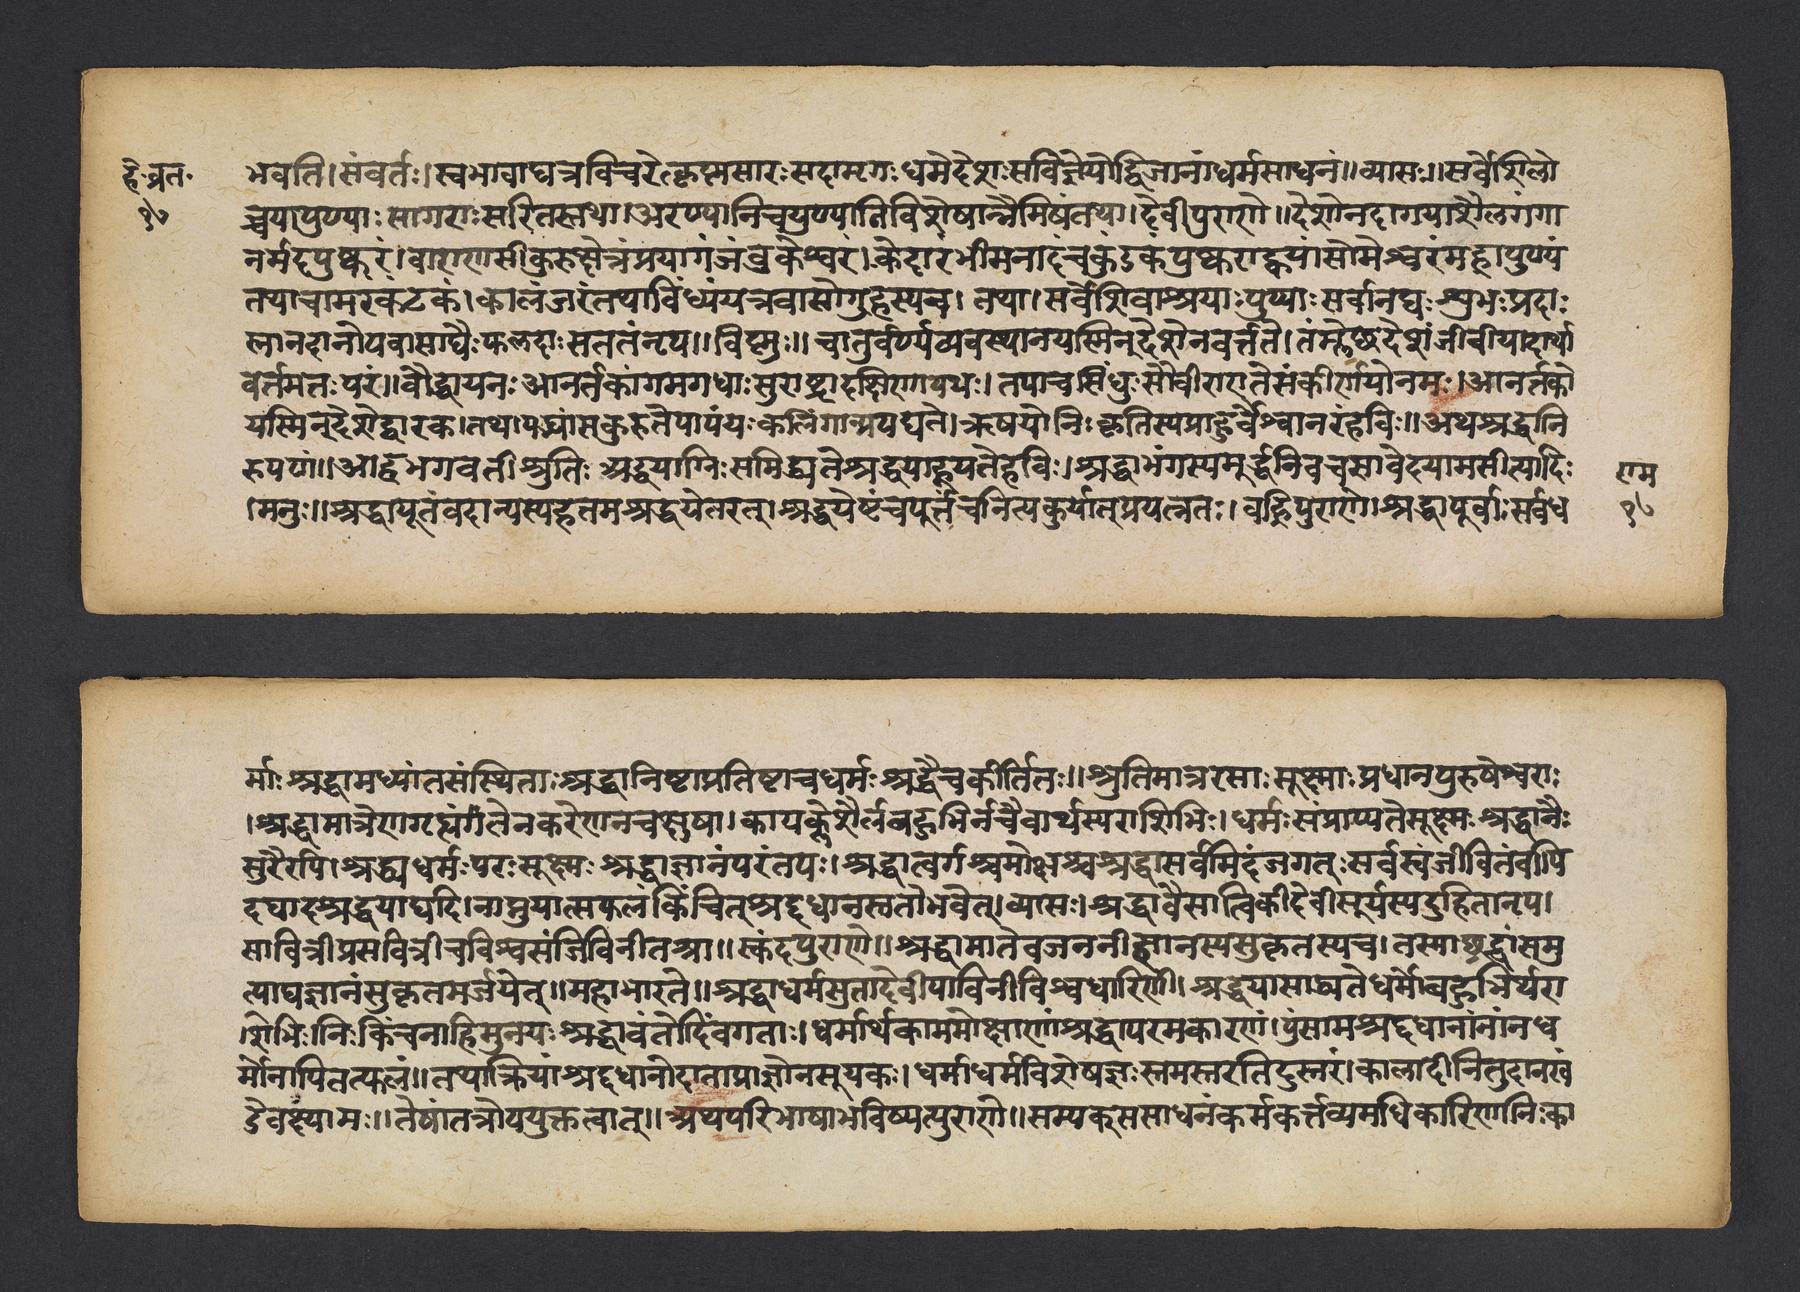 हे·व्रत·
१७
भवति।संवर्तः।स्वभावाद्यत्रविचरेत्कृष्णसारःसदामृगःधर्मदेशःसविज्ञेयोद्विजानांधर्मसाधनं॥व्यासः॥सर्वेशिलो
च्चयापुण्याःसागराःसरितस्तथा।अरण्यानिचपुण्यातिविशेषान्नैमिषंतथा।देवीपुराणे॥देशोनदागयाशैलगंगा
नर्मदपुष्करं।वाराणसीकुरुक्षेत्रंप्रयागंजंबुकेश्वरं।केदारंभीमनादंचकुंडकंपुष्कराह्वयां।सोमेश्वरंमहापुण्यं
तथाचामरकटकं।कालंजरंतथाविंध्यंयत्रवासोगुहस्यच।तथा।सर्वेशिवाश्रयाःपुण्याःसर्वानघःशुभःप्रदाः
स्नानदानोपवासाद्यैःफलदाःसततंनृप॥विष्णुः॥चातुर्वर्ण्यव्यवस्थानयस्मिन्देशेनवर्त्तते।तंम्लेछदेशंजीनीयादार्या
वर्तमतःपरं॥बौद्धायनःआनर्तकांगमगधाःसुराष्ट्रादक्षिणापथः।तथाचसिंधुःसौवीराएतेसंकीर्णयोनमः।आनर्तको
यस्मिन्देशेद्वारक।तथापद्भ्यांसकुरुतेपापंयःकलिंगान्प्रपद्यते।ऋषयोनिःकृतिस्यप्राहुर्वैश्वानरंहविः॥अथश्रद्धानि
रुपणं॥आहभगवतीश्रुतिःश्रद्धयाग्निःसमिद्ध्यतेश्रद्धयाहूयतेहविः।श्रद्धाभंगस्यमुर्द्धनिवचसावेदयामसीत्यादिः
।मनुः॥श्रद्धापूतंवदान्यस्यहतमश्रद्धयेतरत्।श्रद्धयेष्टंचपूर्त्तंचनित्यकुर्यात्प्रयत्नतः।वह्निपुराणे।श्रद्धापूर्वाःसर्वध
राम
१७
र्माःश्रद्धामध्यांतसंस्थिताःश्रद्धानिष्टाप्रतिष्टाचधर्मःश्रद्धैचकीर्तितः॥श्रुतिमात्ररसाःसूक्ष्माःप्रधानपुरुषेश्वराः
।श्रद्धामात्रेणगृह्यंतेनकरेणनचक्षुषा।कायक्लेशैर्लबहुभिर्नचैवार्थस्यराशिभिः।धर्मःसंप्राप्यतेसूक्ष्मःश्रद्धानैः
सुरैरपि।श्रद्ध्यधर्मःपरःसूक्ष्मःश्रद्धाज्ञानंपरंतपः।श्रद्धात्वर्गश्चमोक्षश्चश्रद्धासर्वमिदंजगत्ःसर्वस्वंजीवितंवापि
दद्यादश्रद्धयायदि।नाप्नुयात्सफलंकिंचित्श्रद्दधानस्ततोभवेत्।व्यासः।श्रद्धावैसात्विकीदेवीसूर्यस्यदुहितानृप।
सावित्रीप्रसवित्रीचविश्वसंजिविनीतश्रा॥स्कंदपुराणे॥श्रद्धामातेवजननीज्ञानस्यसुकृतस्यच।तस्माछ्रद्धांसमु
त्पाद्यज्ञानंसुकृतमर्जयेत्॥महाभारते॥श्रद्धाधर्मसुतादेवीपाविनीविश्वधारिणी।श्रद्धयासाध्यतेधर्मोबहुभिर्यरा
शिभिः।निःकिंचनाहिमुनयःश्रद्धावंतोदिवंगताः।धर्मार्थकाममोक्षाणांश्रद्धापरमकारणं।पुंसामश्रद्दधानांनांनध
र्मोनापितत्फलं॥तथाक्रियांश्रद्दधानोदाताप्राज्ञोनसूयकः।धर्माधर्मविशेषज्ञःस्तमस्तरतिदुस्तरं।कालादीनितुदानखं
डेवक्ष्यामः॥तेषांतत्रोपयुक्तत्वात्॥अथपरिभाषाभविष्यत्पुराणे॥सम्यक्ससाधनंकर्मकर्त्तव्यमधिकारिणानिःका